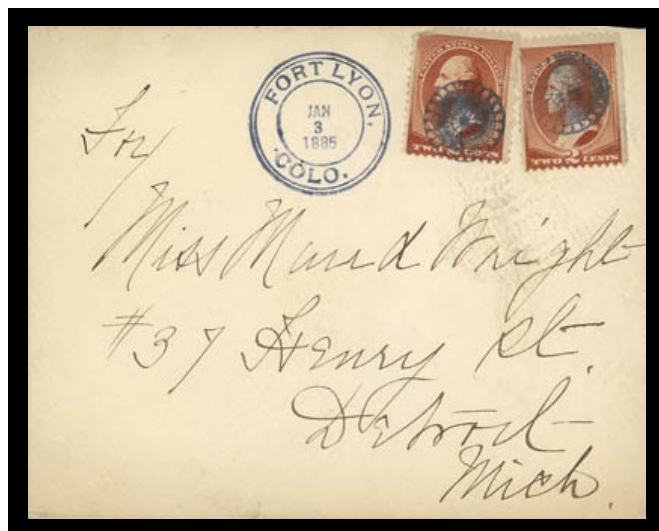 FORT LYON,
JAN
3
1885
COLO.
UNITED STATES POSTAGE
TWO 2 CENTS
TWO 2 CENTS
For
Miss Maud Wright
#37 Henry St.
Detroit
Mich.